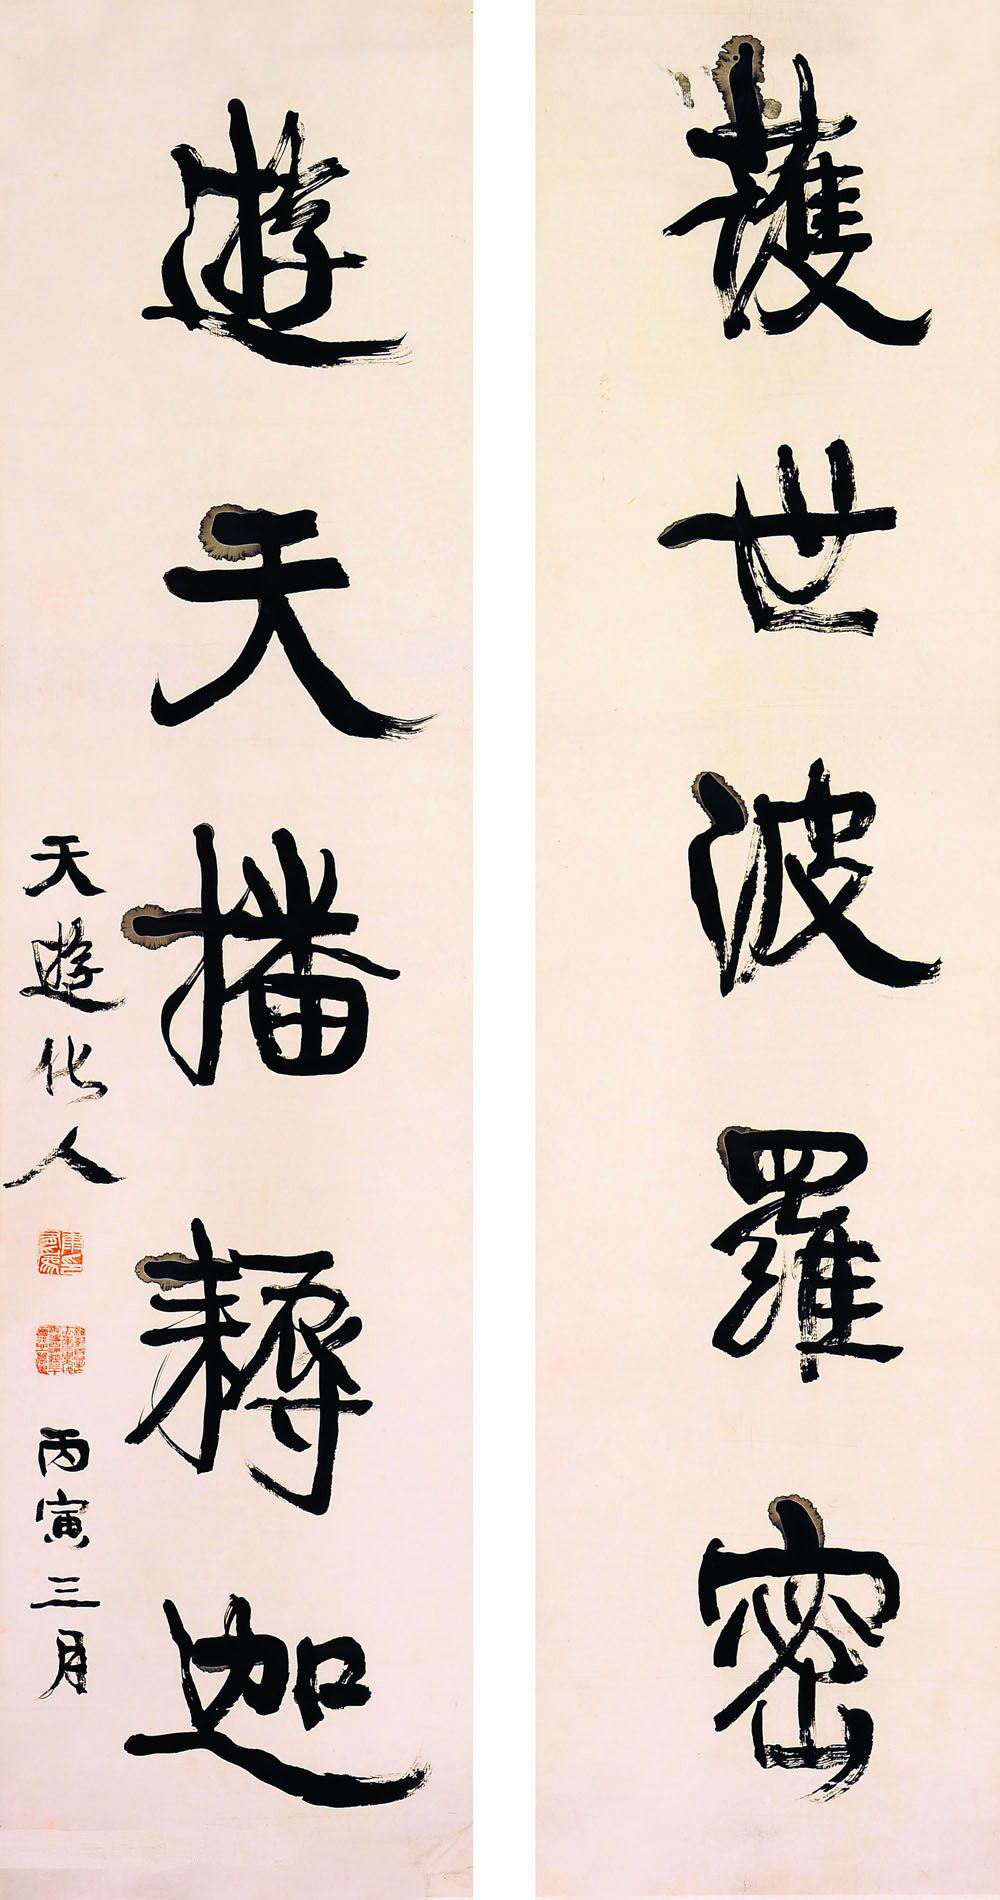 護世波羅密
遊天播耨迦
天遊化人
康有爲印
丙寅三月